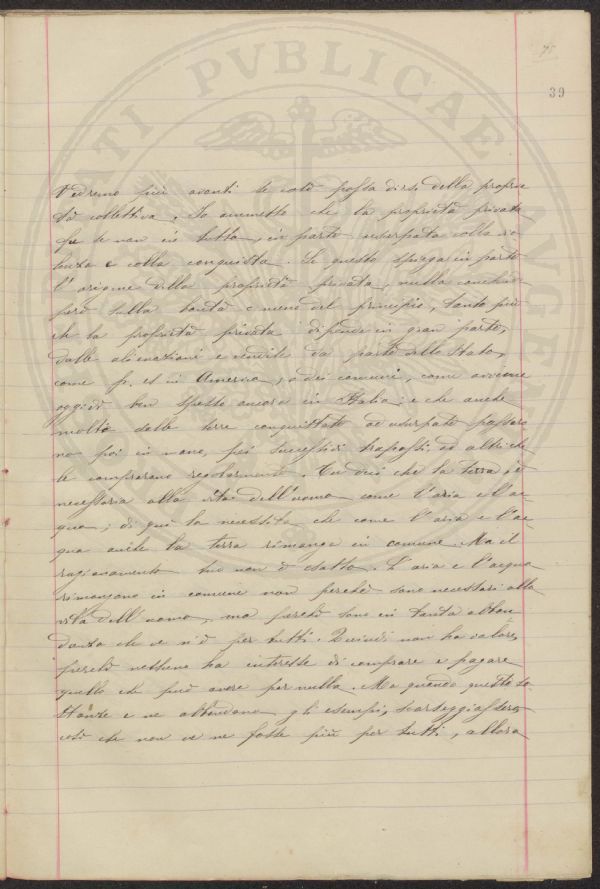 75
39
Vedremo più avanti se ciò possa dirsi della proprie
tà collettiva. Io ammetto che la proprietà privata
fu se non in tutto, in parte usurpata colla vio
lenza e colla conquista. Se questo spiega in parte
l'origine della proprietà privata, nulla conchiude
però sulla bontà o meno del principio, tanto più
che la proprietà privata dipende in gran parte,
dalle alienazioni e vendite da parte dello Stato,
come p. es. in America, o dei comuni, come avviene
oggidì ben spesso ancora in Italia; e che anche
molte delle terre conquistate od usurpate passaro
no poi in mano, per successivi trapassi, ad altri che
le comprarono regolarmente. Tu dici che la terra è
necessaria alla vita dell'uomo come l'aria e l'ac
qua; di qui la necessità che come l'aria e l'ac
qua anche la terra rimanga in comune. Ma il
ragionamento tuo non è esatto. L'aria e l'acqua
rimangono in comune non perchè sono necessari alla
vita dell'uomo, ma perchè sono in tanta abbon
danza che ve n'è per tutti. Quindi non ha valore,
perchè nessuno ha interesse di comprare e pagare
quello che può avere per nulla. Ma quando queste so
stanze e ne abbondano gli esempi, scarseggiassero
così che non ve ne fosse più per tutti, allora